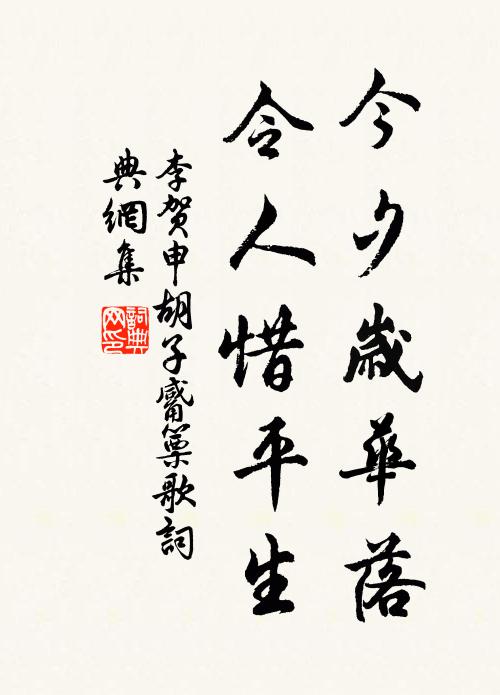 今夕歲華落
令人惜平生
李賀申胡子觱篥歌詞
典網集
詞典
网印